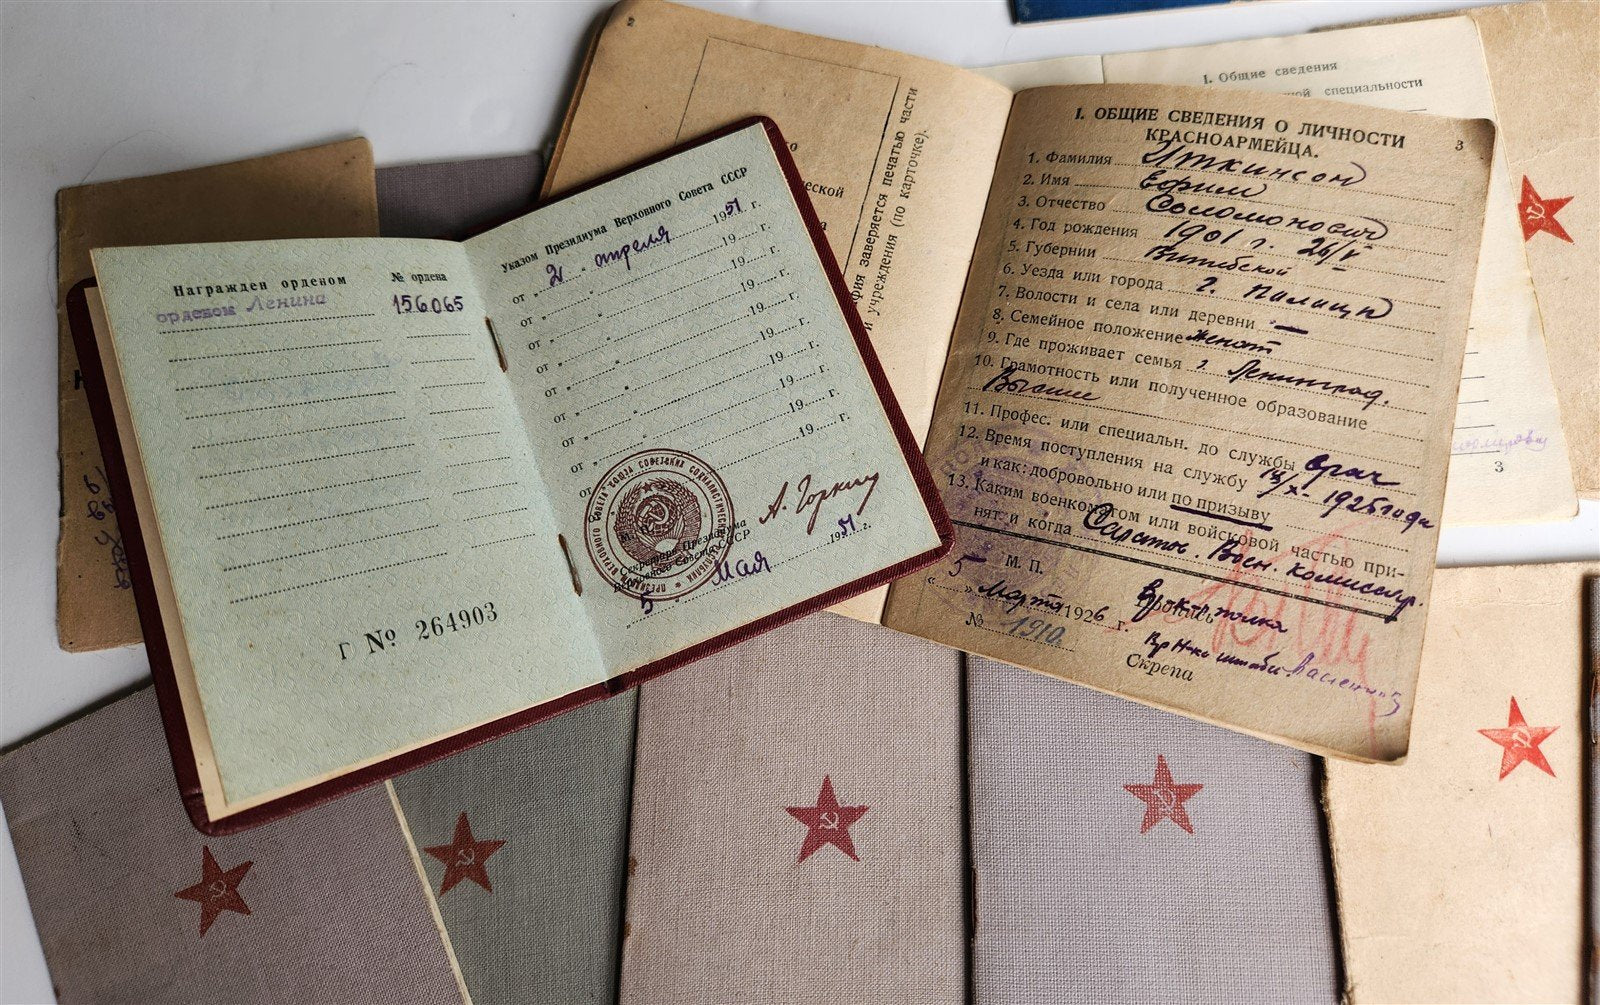 Награжден орденом
№ ордена
орденом Ленина
156065
Г № 264903
Указом Президиума Верховного Совета СССР
от „ 2 “ апреля 1951 г.
от „ “ 19 г.
от „ “ 19 г.
от „ “ 19 г.
от „ “ 19 г.
от „ “ 19 г.
от „ “ 19 г.
от „ “ 19 г.
от „ “ 19 г.
М. П.
Секретарь Президиума
Верховного Совета СССР
А. Горкин
„ 5 “ Мая 1951 г.
заверяется печатью части
и учреждения (по карточке).
I. ОБЩИЕ СВЕДЕНИЯ О ЛИЧНОСТИ
КРАСНОАРМЕЙЦА.
3
1. Фамилия Иткинсон
2. Имя Ефим
3. Отчество Соломонович
4. Год рождения 1901 г. 26/V
5. Губернии Витебской
6. Уезда или города г.
7. Волости и села или деревни —
8. Семейное положение женат
9. Где проживает семья г. Ленинград.
10. Грамотность или полученное образование
Высшее
11. Професс. или специальн. до службы врач
12. Время поступления на службу 1925 года
и как: добровольно или по призыву
13. Каким военкоматом или войсковой частью при-
нят и когда Саратов. Воен. комиссар.
М. П.
„ 5 “ Марта 1926 г.
№ 1910.
Подпись
Скрепа
I. Общие сведения
специальности
3